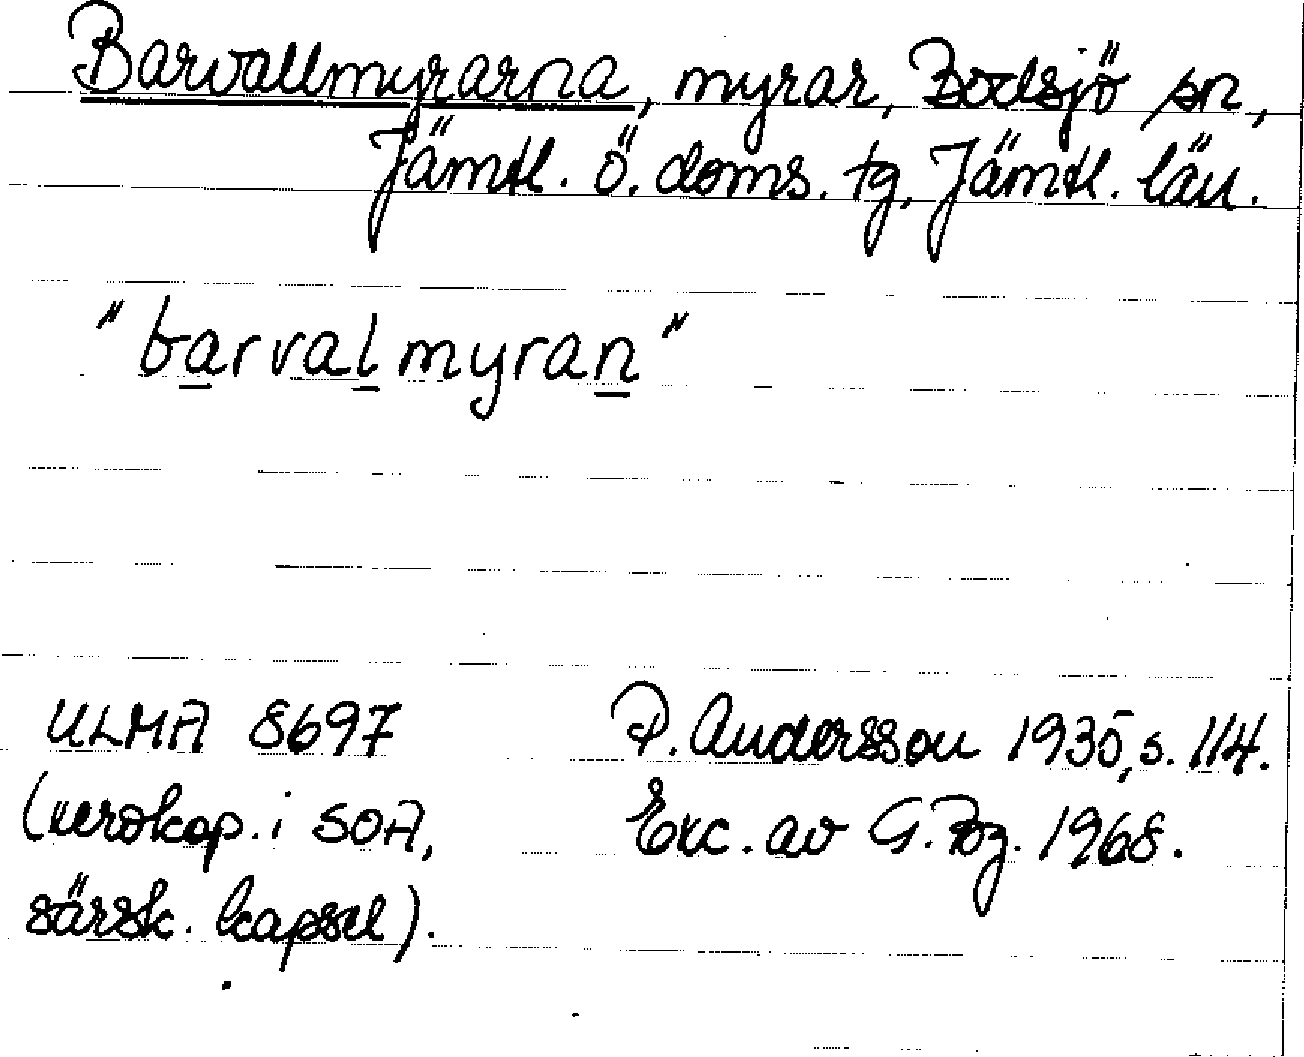 Barvallmyrarna, myrar, Bodsjö sn,
Jämtl. ö. doms. tg, Jämtl. län.
"barvalmyran"
ULMA 8697
(xerokop. i SOA,
särsk. kapsel).
P. Andersson 1935, s. 114.
Exc. av G. Bg. 1968.